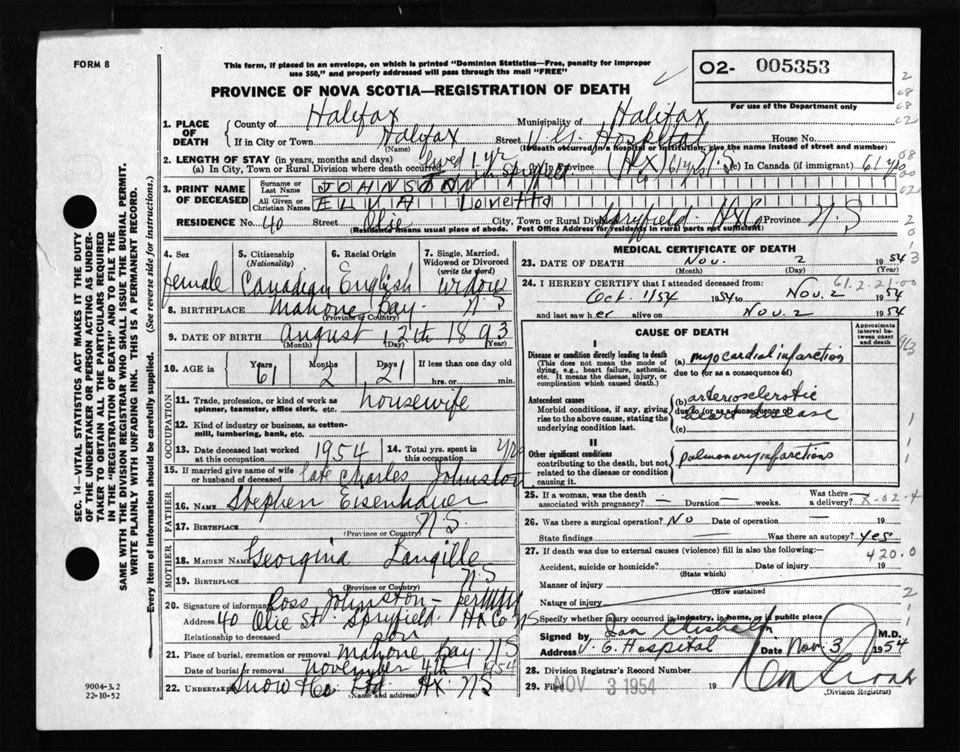 FORM 8
This form, if placed in an envelope, on which is printed "Dominion Statistics—Free, penalty for improper
use $50," and properly addressed will pass through the mail "FREE"
PROVINCE OF NOVA SCOTIA—REGISTRATION OF DEATH
02- 005353
For use of the Department only
1. PLACE OF DEATH
County of Halifax Municipality of Halifax
If in City or Town Halifax Street V.G. Hospital House No.
(Name) (If death occurred in hospital or institution, give the name instead of street and number)
2. LENGTH OF STAY (in years, months and days)
(a) In City, Town or Rural Division where death occurred lived 1 yr in Spryfield Province (HX) 61 yrs N.S. (c) In Canada (if immigrant) 61 yrs
3. PRINT NAME OF DECEASED
Surname or Last Name JOHNSTON
All Given or Christian Names ELVA Loretta
RESIDENCE No. 40 Street Olie City, Town or Rural Division Spryfield HX Co Province N.S
(Residence means usual place of abode. Post Office Address for residents in rural parts not sufficient)
4. Sex female
5. Citizenship (Nationality) Canadian
6. Racial Origin English
7. Single, Married, Widowed or Divorced (write the word) Widow
8. BIRTHPLACE Mahone Bay N.S
(Province or Country)
9. DATE OF BIRTH August 1893
(Month) (Day) (Year)
10. AGE in Years 61 Months 2 Days 21 If less than one day old
hrs. or min.
OCCUPATION
11. Trade, profession, or kind of work as
spinner, teamster, office clerk, etc. housewife
12. Kind of industry or business, as cotton-
mill, lumbering, bank, etc.
13. Date deceased last worked at this occupation 1954 14. Total yrs. spent in this occupation yrs
15. If married give name of wife or husband of deceased late Charles Johnston
FATHER
16. NAME Stephen Eisenhauer
17. BIRTHPLACE N.S.
(Province or Country)
MOTHER
18. MAIDEN NAME Georgina Langille
19. BIRTHPLACE N.S
(Province or Country)
20. Signature of informant Ross Johnston - per
Address 40 Olie St. Spryfield HX Co NS
Relationship to deceased son
21. Place of burial, cremation or removal Mahone Bay NS
Date of burial or removal November 4th 1954
22. Undertaker Snow & Co Ltd HX NS
(Name and address)
MEDICAL CERTIFICATE OF DEATH
23. DATE OF DEATH Nov. 2 1954
(Month) (Day) (Year)
24. I HEREBY CERTIFY that I attended deceased from:
Oct. 1954 to Nov. 2 1954
and last saw her alive on Nov. 2 1954
CAUSE OF DEATH
Approximate interval between onset and death
I
Disease or condition directly leading to death
(This does not mean the mode of
dying, e.g., heart failure, asthenia,
etc. It means the disease, injury, or
complication which caused death.)
(a) myocardial infarction
due to (or as a consequence of)
Antecedent causes
Morbid conditions, if any, giving
rise to the above cause, stating the
underlying condition last.
(b) arteriosclerotic
due to (or as a consequence of)
heart disease
(c)
II
Other significant conditions
contributing to the death, but not
related to the disease or condition
causing it.
pulmonary infarctions
25. If a woman, was the death
associated with pregnancy? — Duration — weeks. Was there a delivery?
26. Was there a surgical operation? NO Date of operation — 19
State findings — Was there an autopsy? Yes
27. If death was due to external causes (violence) fill in also the following:
420.0
Accident, suicide or homicide? Date of injury 19
(State which)
Manner of injury
(How sustained
Nature of injury
Specify whether injury occurred in industry, in home, or in public place
Signed by Chisholm M.D.
Address V. G. Hospital Date Nov. 3 1954
28. Division Registrar's Record Number
29. Filed NOV 3 1954 19
(Division Registrar)
SEC. 14—VITAL STATISTICS ACT MAKES IT THE DUTY
OF THE UNDERTAKER OR PERSON ACTING AS UNDER-
TAKER TO OBTAIN ALL THE PARTICULARS REQUIRED
IN THE "REGISTRATION OF DEATH" AND TO FILE THE
SAME WITH THE DIVISION REGISTRAR WHO SHALL ISSUE THE BURIAL PERMIT.
WRITE PLAINLY WITH UNFADING INK. THIS IS A PERMANENT RECORD.
Every item of information should be carefully supplied. (See reverse side for instructions.)
9004-3.2
22-10-52